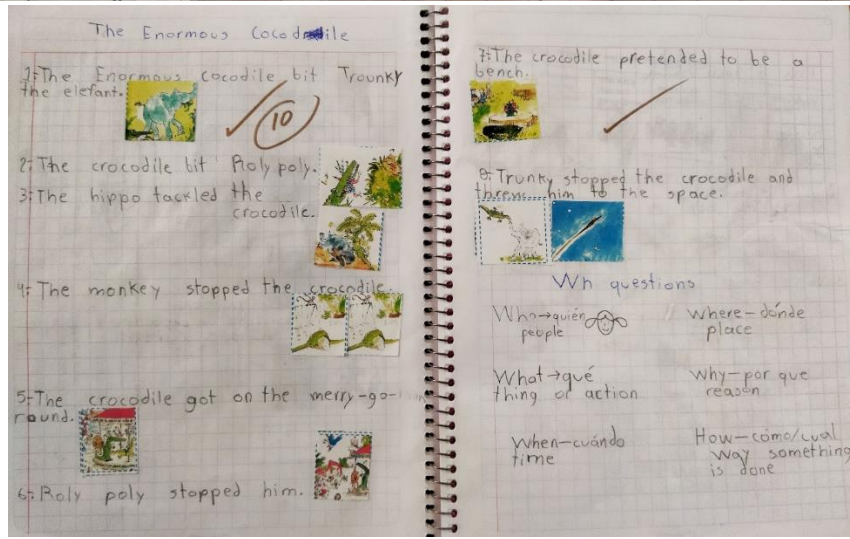 The Enormous Cocodile
1-The Enormous cocodile bit Trounky
the elefant.
10
2-The crocodile bit Roly poly.
3-The hippo tackled the
crocodile.
4-The monkey stopped the crocodile.
5-The crocodile got on the merry-go-
round.
6-Roly poly stopped him.
7-The crocodile pretended to be a
bench.
8-Trunky stopped the crocodile and
threw him to the space.
Wh questions
Who→quién
people
Where-dónde
place
What→qué
thing or action
Why-por que
reason
When-cuándo
time
How-cómo/cual
way something
is done